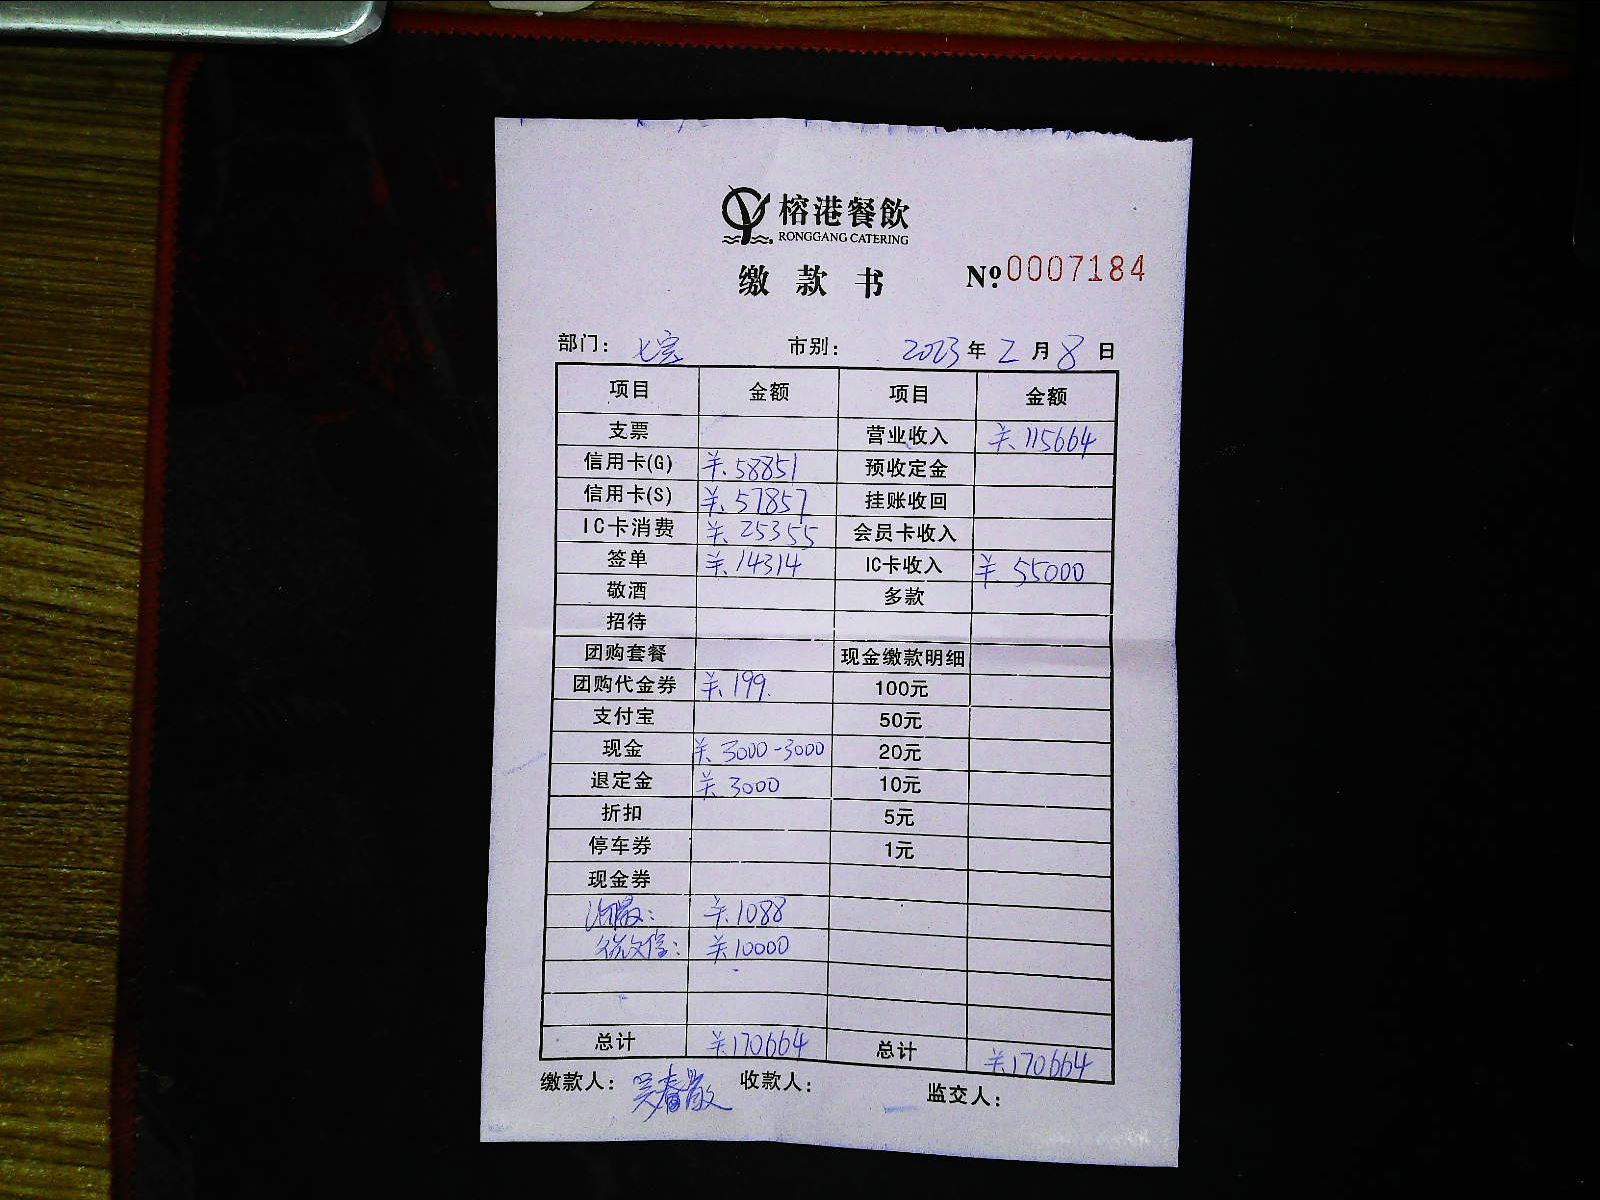 榕港餐飲
RONGGANG CATERING
缴款书 Nº 0007184
部门: 七宝 市别: 2023年2月8日
项目 金额 项目 金额
支票 营业收入 ¥.115664
信用卡(G) ¥.58851 预收定金
信用卡(S) ¥.57857 挂账收回
IC卡消费 ¥.25355 会员卡收入
签单 ¥.14314 IC卡收入 ¥.55000
敬酒 多款
招待
团购套餐 现金缴款明细
团购代金券 ¥.199. 100元
支付宝 50元
现金 ¥.3000-3000 20元
退定金 ¥.3000 10元
折扣 5元
停车券 1元
现金券
¥.1088
¥10000
总计 ¥170664 总计 ¥170664
缴款人: 收款人: 监交人: